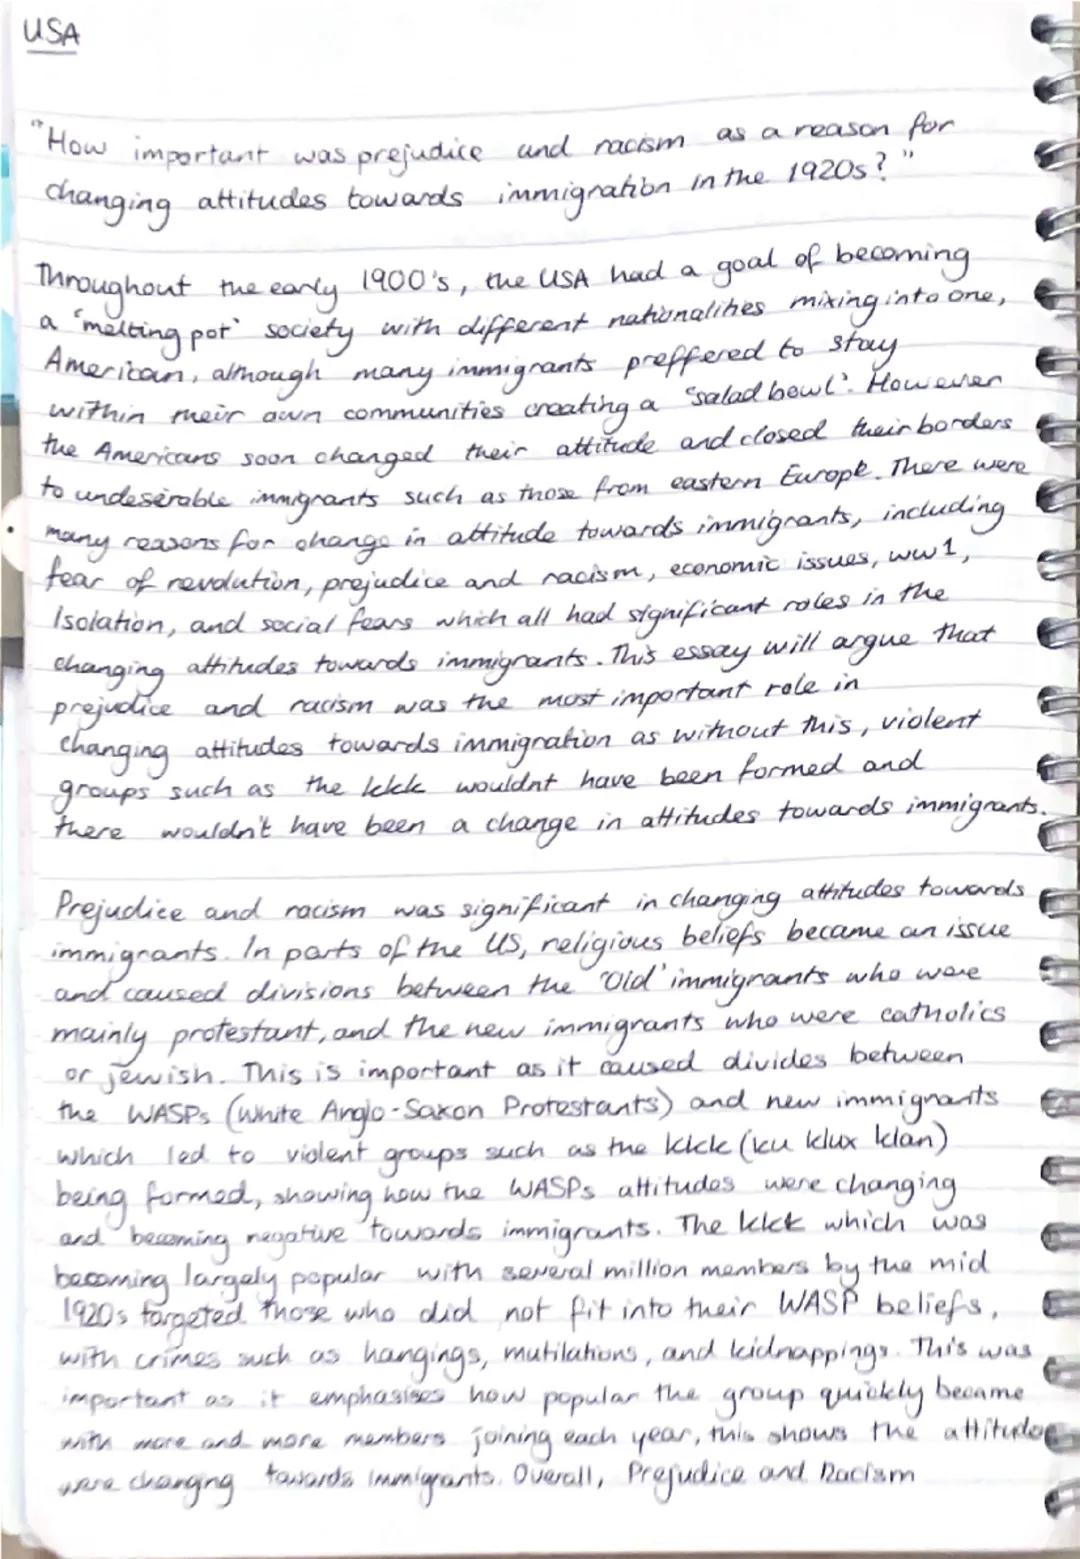 USA
"How important was prejudice and racism as a reason for
changing attitudes towards immigration in the 1920s?"
Throughout the early 1900's, the USA had a goal of becoming
a 'melting pot' society with different nationalities mixing into one,
American, although many immigrants preffered to stay
within their own communities creating a 'salad bowl'. However
the Americans soon changed their attitude and closed their borders
to undeserable immigrants such as those from eastern Europe. There were
many reasons for change in attitude towards immigrants, including
fear of revolution, prejudice and racism, economic issues, ww1,
Isolation, and social fears which all had significant roles in the
changing attitudes towards immigrants. This essay will argue that
prejudice and racism was the most important role in
changing attitudes towards immigration as without this, violent
groups such as the kkk wouldnt have been formed and
there wouldn't have been a change in attitudes towards immigrants.
Prejudice and racism was significant in changing attitudes towards
immigrants. In parts of the US, religious beliefs became an issue
and caused divisions between the 'Old' immigrants who were
mainly protestant, and the new immigrants who were catholics
or jewish. This is important as it caused divides between
the WASPs (White Anglo-Saxon Protestants) and new immigrants
which led to violent groups such as the kkk (ku klux klan)
being formed, showing how the WASPs attitudes were changing
and becoming negative towards immigrants. The kkk which was
becoming largely popular with several million members by the mid
1920s targeted those who did not fit into their WASP beliefs,
with crimes such as hangings, mutilations, and kidnappings. This was
important as it emphasises how popular the group quickly became
with more and more members joining each year, this shows the attitudes
were changing towards immigrants. Overall, Prejudice and Racism